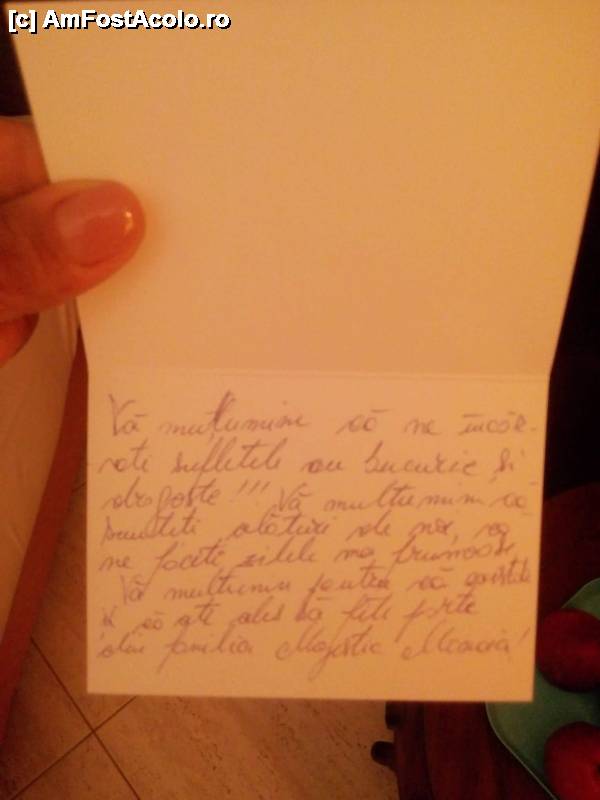 [c] AmFostAcolo.ro
Vă mulțumim că ne încăr-
cați sufletele cu bucurie și
dragoste!!! Vă mulțumim că
sunteți alături de noi, că
ne faceți zilele mai frumoase.
Vă mulțumim pentru că existați
și că ați ales să fiți parte
din familia Majestic Mamaia!